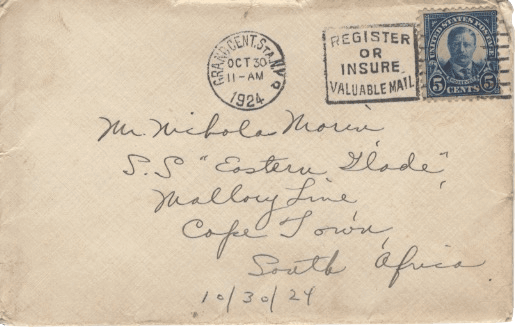 GRAND CENT. STA. N.Y.
OCT 30
11-AM
1924
REGISTER
OR
INSURE
VALUABLE MAIL
UNITED STATES POSTAGE
5 CENTS 5
Mr. Nicholas Morin
S.S "Eastern Glade"
Mallory Line
Cape Town,
South Africa
10/30/24